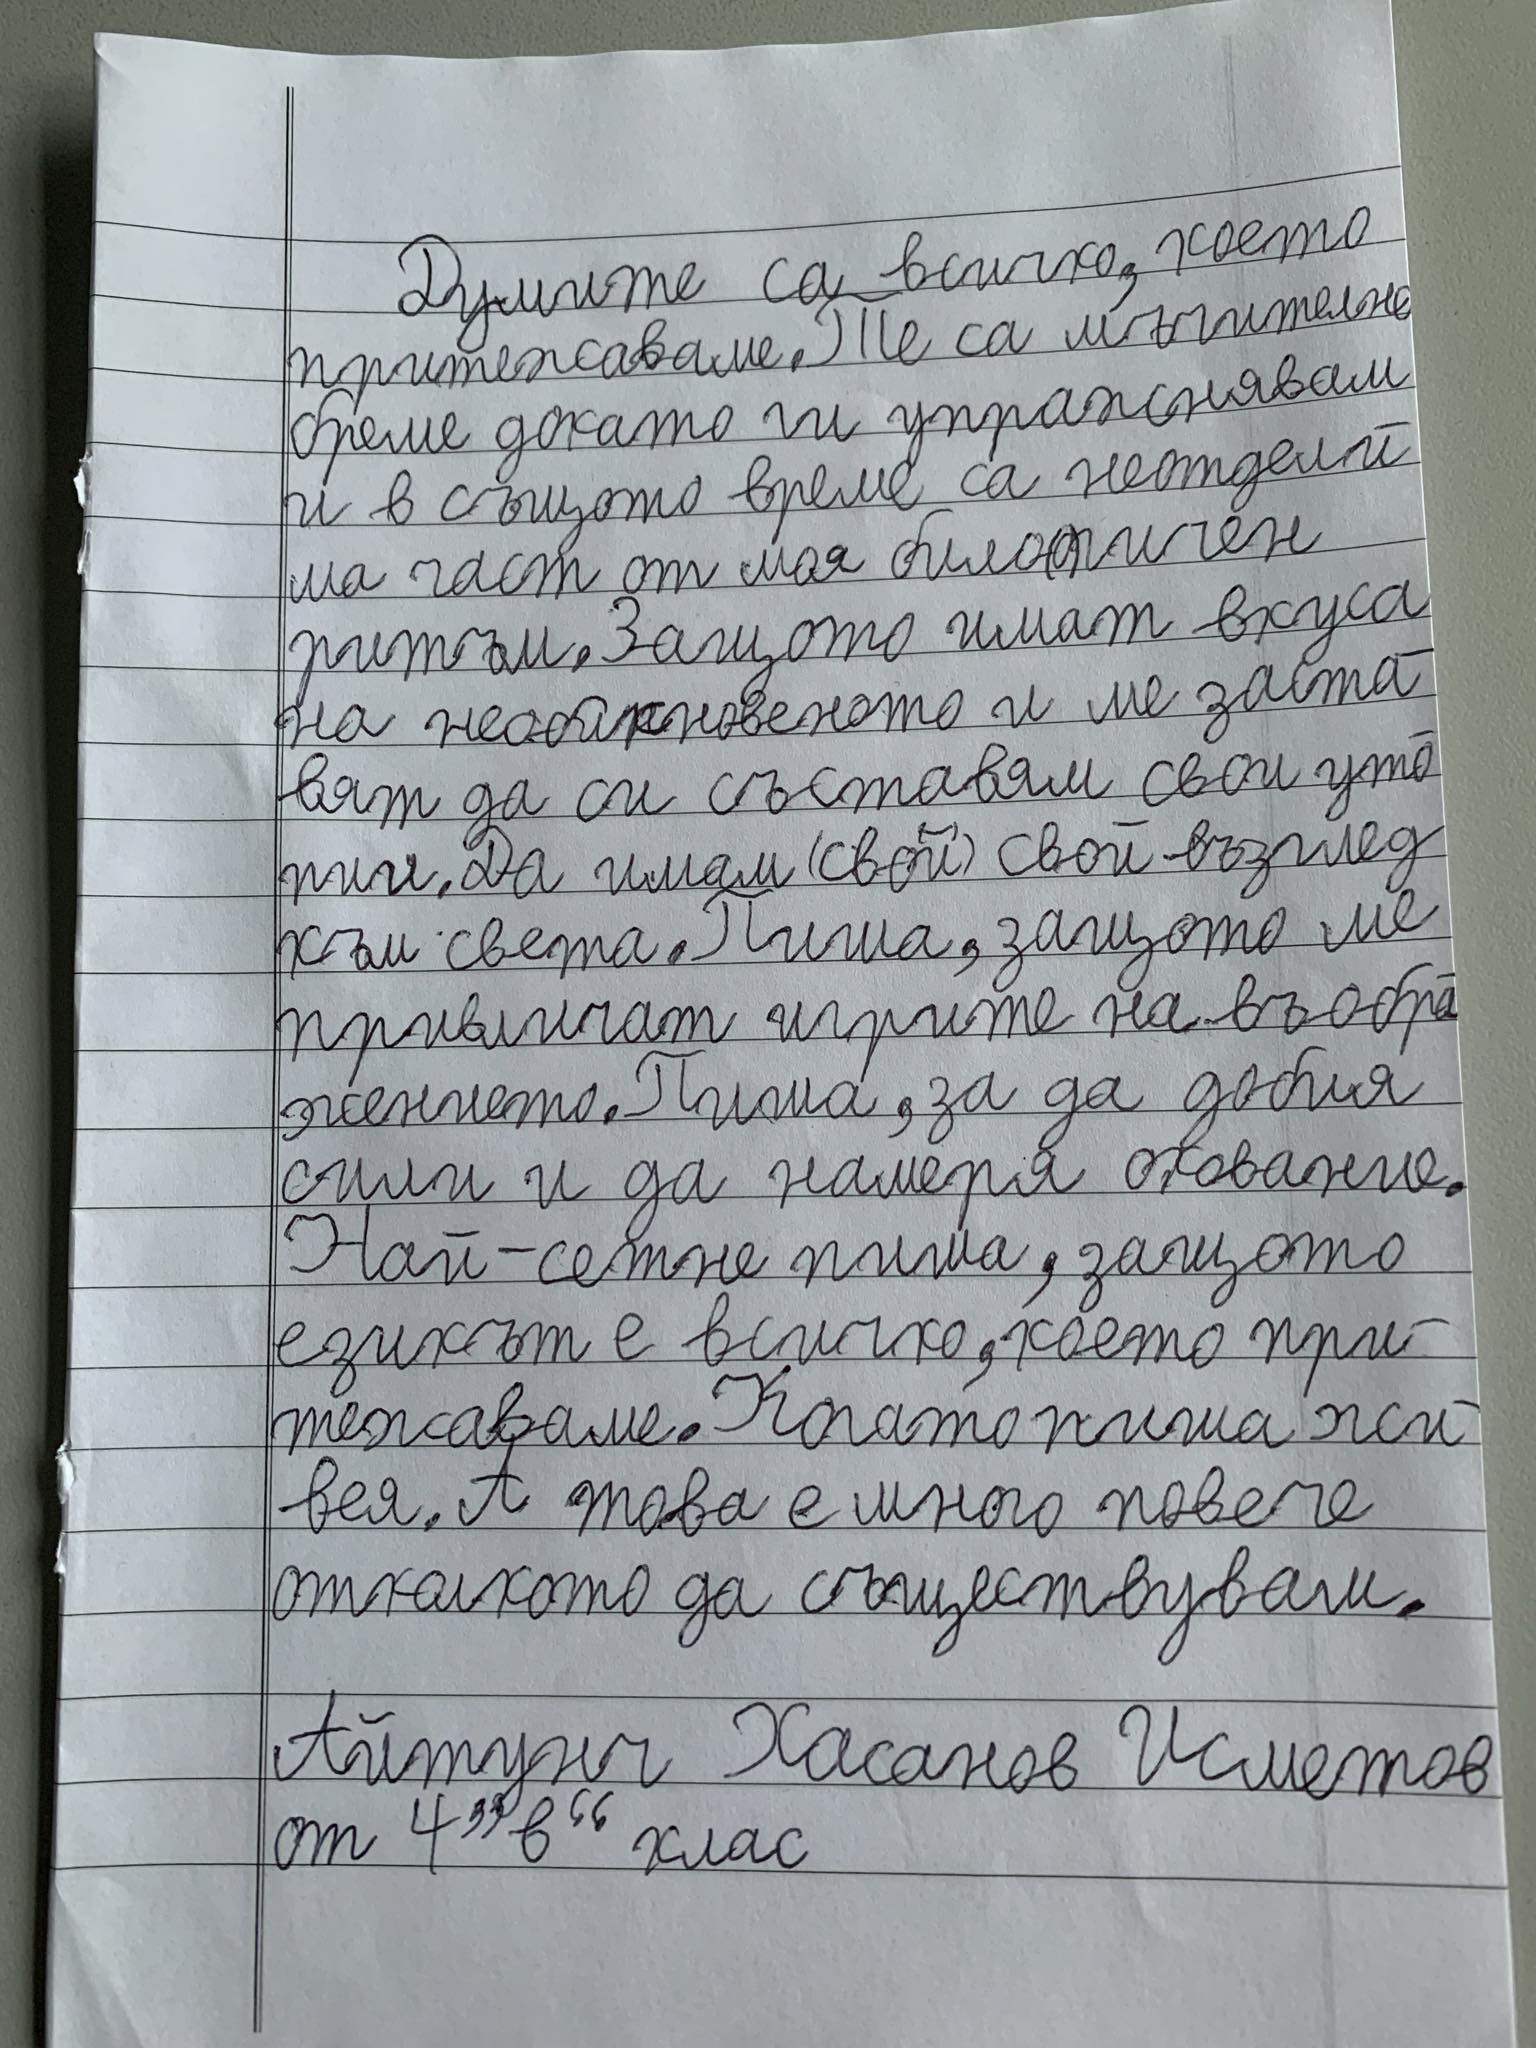 Думите са всичко, което
притежаваме. Те са мъчително
бреме докато ги упражнявам
и в същото време са неотдели-
ма част от моя билогичен
ритъм. Защото имат вкуса
на необикновеното и ме заста-
вят да си съставям свои уто-
пии. Да имам (свой) свой възглед
към света. Пиша, защото ме
привличат игрите на въобра-
жението. Пиша, за да добия
сили и да намеря окование.
Най-сетне пиша, защото
езикът е всичко, което при-
тежаваме. Когато пиша жи-
вея. А това е много повече
отколкото да съществувам.
Айтунч Хасанов Исметов
от 4 "в" клас